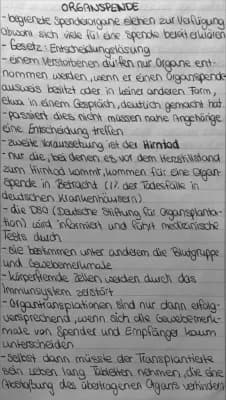 ORGANSPENDE
- begrenzte Spenderorgane stehen zur Verfügung
obwohl sich viele für eine Spende bereiterklären
- Gesetz: Entscheidungslösung
- einem Verstorbenen dürfen nur Organe ent-
nommen werden, wenn er einen Organspende-
ausweis besitzt oder in keiner anderen Form,
etwa in einem Gespräch, deutlich gemacht hat.
- passiert dies nicht müssen nahe Angehörige
eine Entscheidung treffen
- zweite Voraussetzung ist der Hirntod
- nur die, bei denen es vor dem Herzstillstand
zum Hirntod kommt, kommen für eine Organ-
spende in Betracht (1% der Todesfälle in
deutschen Krankenhäusern)
- die DSO (Deutsche Stiftung für Organsplanta-
tion) wird informiert und führt medizinische
Tests durch
- sie bestimmen unter anderem die Blutgruppe
und Gewebemerkmale
- körperfremde Zellen werden durch das
Immunsystem zerstört
- Organtransplationen sind nur dann erfolg-
versprechend, wenn sich die Gewebemerk-
male von Spender und Empfänger kaum
unterscheiden
- Selbst dann müsste der Transplantierte
sein Leben lang Tabletten nehmen, die eine
(Abstoßung des übertragenen Organs verhindern)